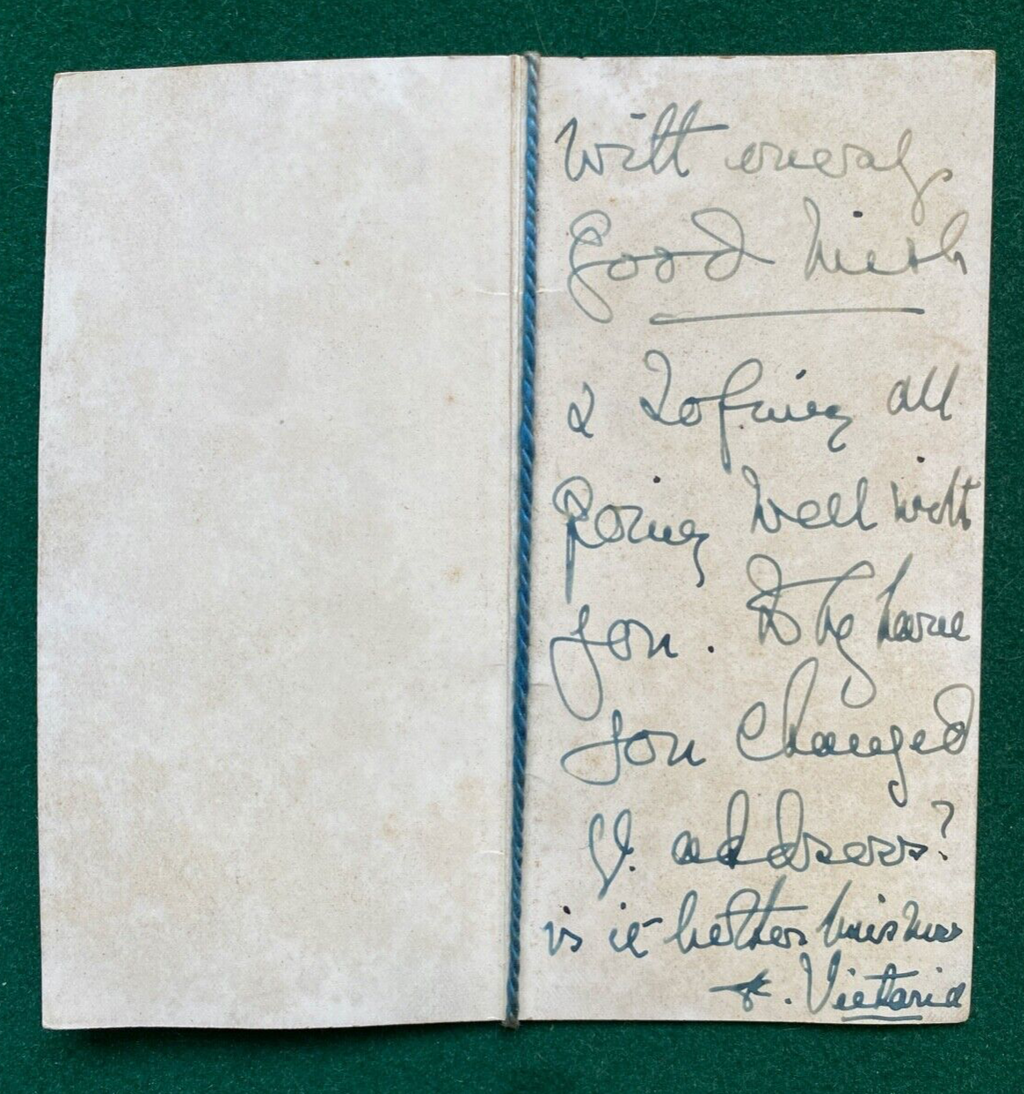 With every
Good Wish
& hoping all
Going well with
you. Why have
you changed
yr. address?
is it better business
Victoria